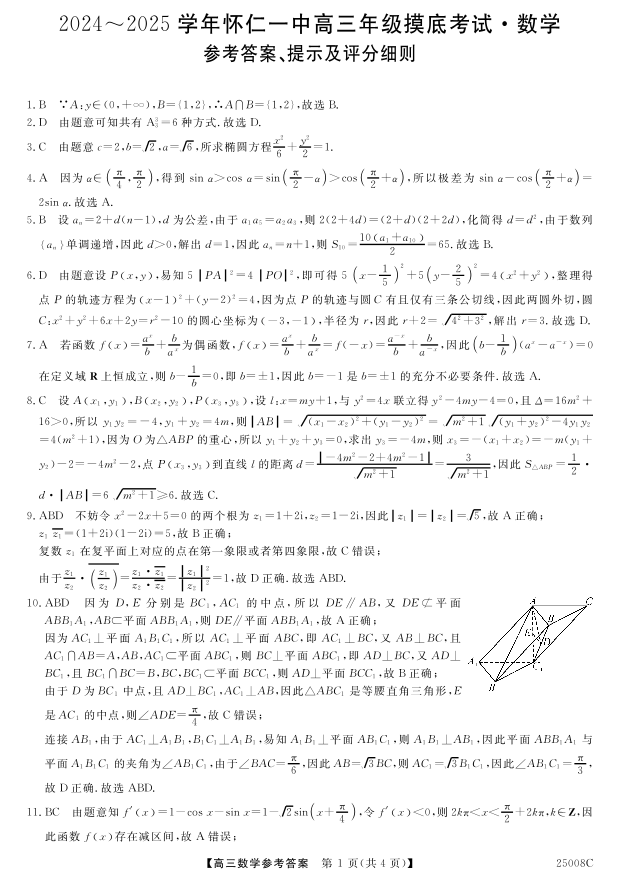 2024～2025 学年怀仁一中高三年级摸底考试·数学
参考答案、提示及评分细则
1. B ∵A:y∈(0,+∞),B={1,2},∴A∩B={1,2},故选 B.
2. D 由题意可知共有 A₃³=6 种方式. 故选 D.
3. C 由题意 c=2,b=√2,a=√6,所求椭圆方程x²/6+y²/2=1.
4. A 因为 α∈(π/4,π/2),得到 sin α>cos α=sin(π/2-α)>cos(π/2+α),所以极差为 sin α-cos(π/2+α)=
2sin α. 故选 A.
5. B 设 aₙ=2+d(n-1),d 为公差,由于 a₁a₅=a₂a₃,则 2(2+4d)=(2+d)(2+2d),化简得 d=d²,由于数列
{aₙ}单调递增,因此 d>0,解出 d=1,因此 aₙ=n+1,则 S₁₀=10(a₁+a₁₀)/2=65. 故选 B.
6. D 由题意设 P(x,y),易知 5|PA|²=4|PO|²,即可得 5(x-1/5)²+5(y-2/5)²=4(x²+y²),整理得
点 P 的轨迹方程为(x-1)²+(y-2)²=4,因为点 P 的轨迹与圆 C 有且仅有三条公切线,因此两圆外切,圆
C:x²+y²+6x+2y=r²-10 的圆心坐标为(-3,-1),半径为 r,因此 r+2=√(4²+3²),解出 r=3. 故选 D.
7. A 若函数 f(x)=aˣ/b+b/aˣ为偶函数,f(x)=aˣ/b+b/aˣ=f(-x)=a⁻ˣ/b+b/a⁻ˣ,因此(b-1/b)(aˣ-a⁻ˣ)=0
在定义域 R 上恒成立,则 b-1/b=0,即 b=±1,因此 b=-1 是 b=±1 的充分不必要条件. 故选 A.
8. C 设 A(x₁,y₁),B(x₂,y₂),P(x₃,y₃),设 l:x=my+1,与 y²=4x 联立得 y²-4my-4=0,且 Δ=16m²+
16>0,所以 y₁y₂=-4,y₁+y₂=4m,则|AB|=√((x₁-x₂)²+(y₁-y₂)²)=√(m²+1)√((y₁+y₂)²-4y₁y₂)
=4(m²+1),因为 O 为△ABP 的重心,所以 y₁+y₂+y₃=0,求出 y₃=-4m,则 x₃=-(x₁+x₂)=-m(y₁+
y₂)-2=-4m²-2,点 P(x₃,y₃)到直线 l 的距离 d=|-4m²-2+4m²-1|/√(m²+1)=3/√(m²+1),因此 S△ABP=1/2·
d·|AB|=6√(m²+1)≥6. 故选 C.
9. ABD 不妨令 x²-2x+5=0 的两个根为 z₁=1+2i,z₂=1-2i,因此|z₁|=|z₂|=√5,故 A 正确;
z₁z̅₁=(1+2i)(1-2i)=5,故 B 正确;
复数 z₁ 在复平面上对应的点在第一象限或者第四象限,故 C 错误;
由于z₁/z₂·(z₁/z₂)̅=z₁·z̅₁/z₂·z̅₂=|z₁|²/|z₂|²=1,故 D 正确. 故选 ABD.
10. ABD 因为 D,E 分别是 BC₁,AC₁ 的中点,所以 DE∥AB,又 DE⊄平面
ABB₁A₁,AB⊂平面 ABB₁A₁,则 DE∥平面 ABB₁A₁,故 A 正确;
因为 AC₁⊥平面 A₁B₁C₁,所以 AC₁⊥平面 ABC,即 AC₁⊥BC,又 AB⊥BC,且
AC₁∩AB=A,AB,AC₁⊂平面 ABC₁,则 BC⊥平面 ABC₁,即 AD⊥BC,又 AD⊥
BC₁,且 BC₁∩BC=B,BC,BC₁⊂平面 BCC₁,则 AD⊥平面 BCC₁,故 B 正确;
由于 D 为 BC₁ 中点,且 AD⊥BC₁,AC₁⊥AB,因此△ABC₁ 是等腰直角三角形,E
是 AC₁ 的中点,则∠ADE=π/4,故 C 错误;
连接 AB₁,由于 AC₁⊥A₁B₁,B₁C₁⊥A₁B₁,易知 A₁B₁⊥平面 AB₁C₁,则 A₁B₁⊥AB₁,因此平面 ABB₁A₁ 与
平面 A₁B₁C₁ 的夹角为∠AB₁C₁,由于∠BAC=π/6,因此 AB=√3BC,则 AC₁=√3B₁C₁,因此∠AB₁C₁=π/3,
故 D 正确. 故选 ABD.
A
C
B
E
D
A₁
C₁
B₁
11. BC 由题意知 f′(x)=1-cos x-sin x=1-√2sin(x+π/4),令 f′(x)<0,则 2kπ<x<π/2+2kπ,k∈Z,因
此函数 f(x)存在减区间,故 A 错误;
【高三数学参考答案 第 1 页(共 4 页)】
25008C